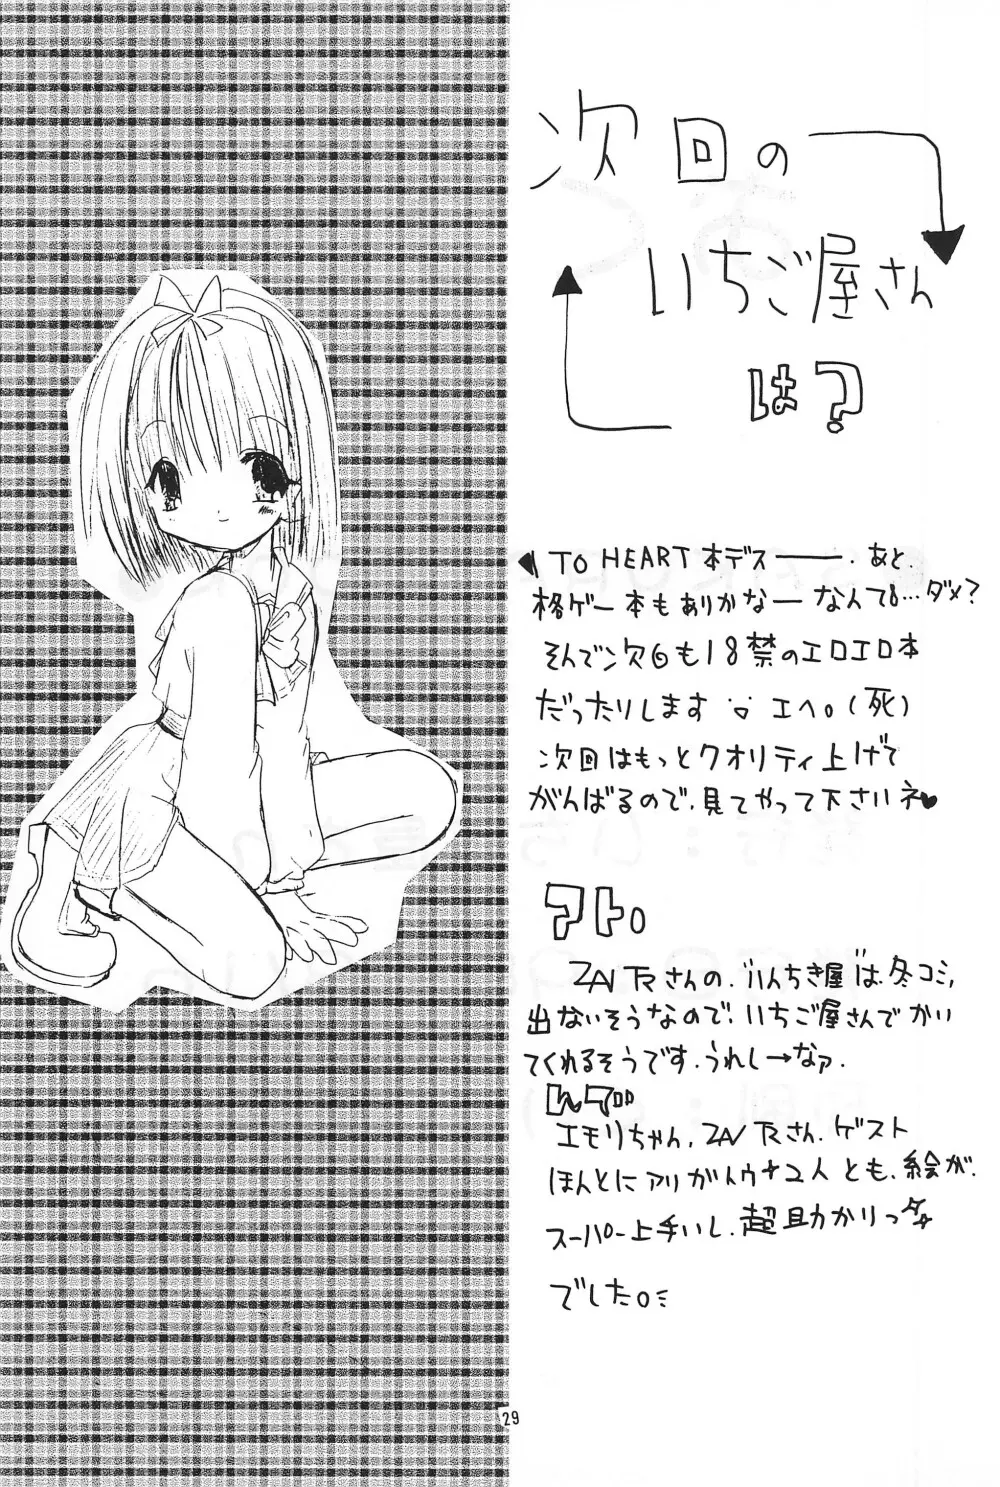 次回の
いちご屋さん
は?
TO HEART 本デス——. あと.
格ゲー本もありかなーなんても…ダメ?
そんで次回も18禁のエロエロ本
だったりします エヘ。(死)
次回はもっとクオリティ上げて
がんばるので、見てやって下さいネ♥
アト。
さんの、"いんちき屋"は、冬コミ,
出ないそうなので、いちご屋さんでかい
てくれるそうです.うれしーなァ.
エモリちゃん, さん.ゲスト
ほんとにアリガトウナ2人とも、絵が.
スーパー上手いし、超助かりっ
でした。
29